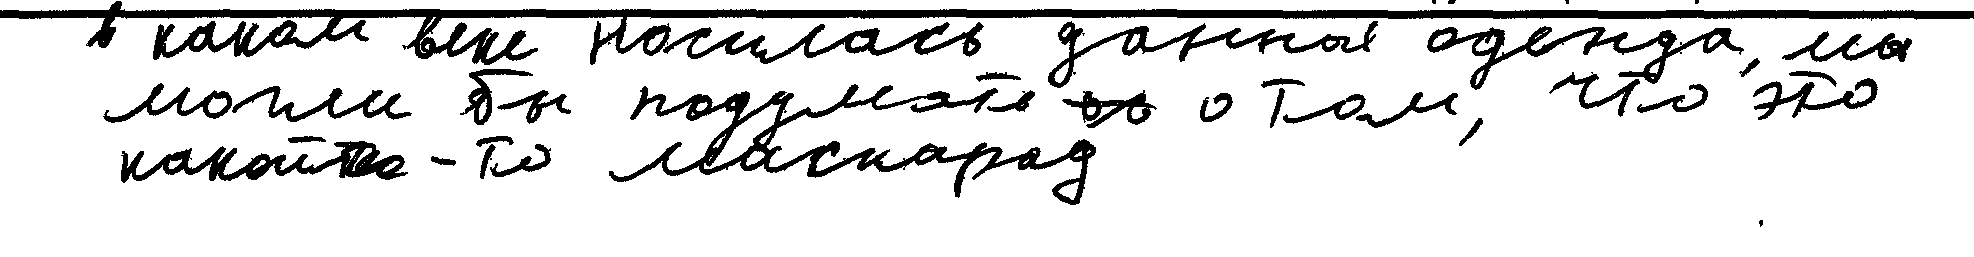 в каком веке носилась данный одежда, мы
могли бы подумать о том, что это
какой-то маскарад